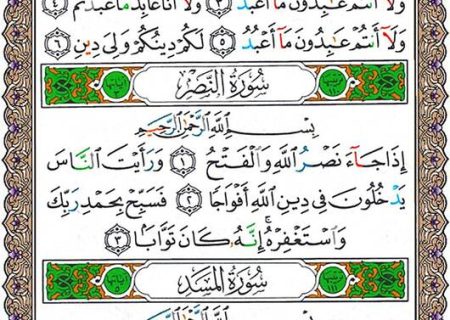 وَلَآ أَنتُمْ عَٰبِدُونَ مَآ أَعْبُدُ ٣ وَلَآ أَنَا۠ عَابِدٌ مَّا عَبَدتُّمْ ٤
وَلَآ أَنتُمْ عَٰبِدُونَ مَآ أَعْبُدُ ٥ لَكُمْ دِينُكُمْ وَلِىَ دِينِ ٦
سُورَةُ النَّصْرِ
بِسْمِ اللَّهِ الرَّحْمَٰنِ الرَّحِيمِ
إِذَا جَآءَ نَصْرُ اللَّهِ وَالْفَتْحُ ١ وَرَأَيْتَ النَّاسَ
يَدْخُلُونَ فِى دِينِ اللَّهِ أَفْوَاجًا ٢ فَسَبِّحْ بِحَمْدِ رَبِّكَ
وَاسْتَغْفِرْهُ إِنَّهُۥ كَانَ تَوَّابًۢا ٣
سُورَةُ الْمَسَدِ
بِسْمِ اللَّهِ الرَّحْمَٰنِ